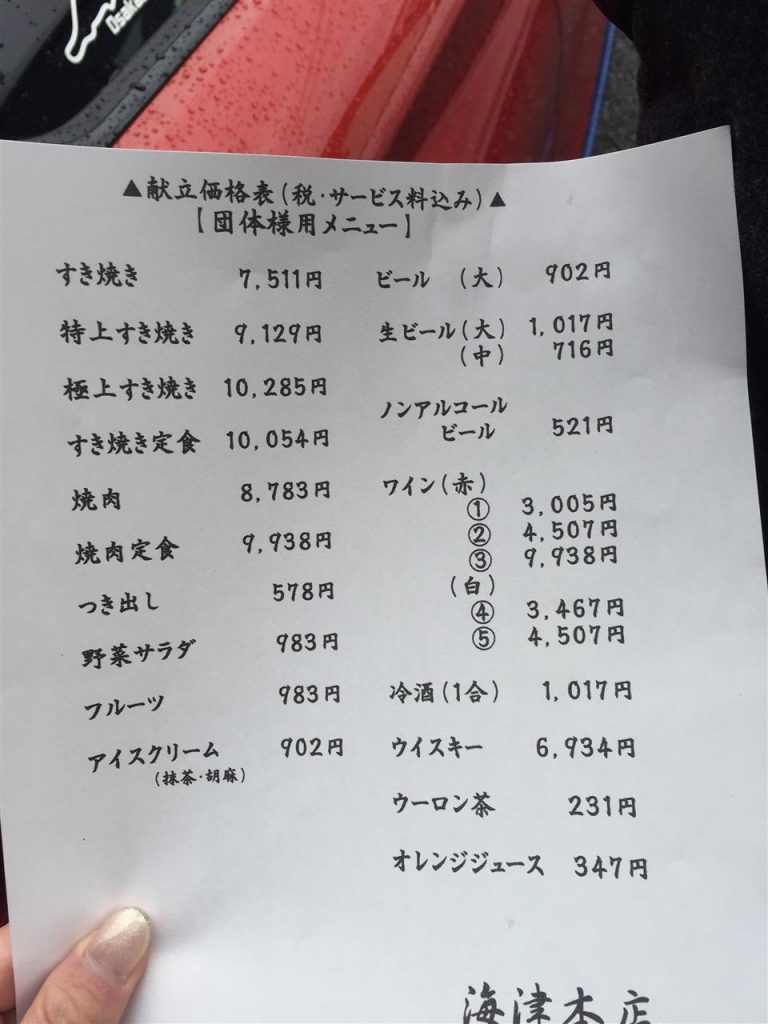 Osaka
▲献立価格表(税・サービス料込み)▲
【団体様用メニュー】
すき焼き 7,511円
特上すき焼き 9,129円
極上すき焼き 10,285円
すき焼き定食 10,054円
焼肉 8,783円
焼肉定食 9,938円
つき出し 578円
野菜サラダ 983円
フルーツ 983円
アイスクリーム 902円
(抹茶・胡麻)
ビール (大) 902円
生ビール(大) 1,017円
(中) 716円
ノンアルコール
ビール 521円
ワイン(赤)
① 3,005円
② 4,507円
③ 9,938円
(白)
④ 3,467円
⑤ 4,507円
冷酒(1合) 1,017円
ウイスキー 6,934円
ウーロン茶 231円
オレンジジュース 347円
海津本店